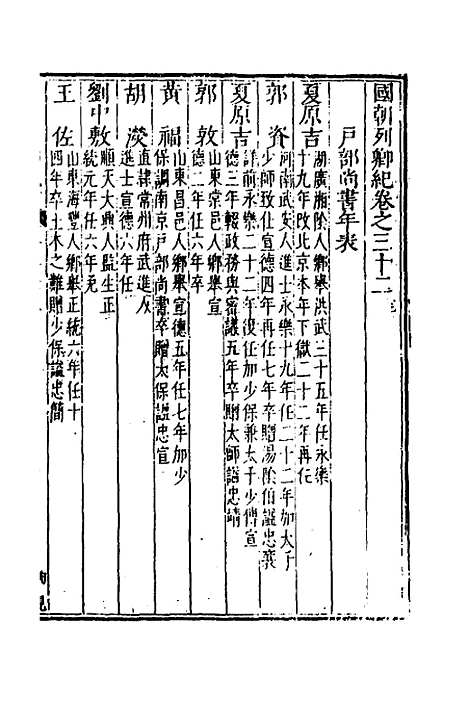 國朝列卿紀卷之三十二
戶部尚書年表
夏原吉
湖廣湘陰人鄉舉洪武三十五年任永樂
十九年改北京本年下獄二十二年再任
郭資
河南武安人進士永樂十九年任二十二年加太子
少師致仕宣德四年再任七年卒贈湯陰伯謚忠襄
夏原吉
詳前永樂二十二年復任加少保兼太子少傅宣
德三年輟政務與密議五年卒贈太師謚忠靖
郭敦
山東棠邑人鄉舉宣
德二年任六年卒
黃福
山東昌邑人鄉舉宣德五年任七年加少
保調南京戶部尚書卒贈太保謚忠宣
胡濙
直隸常州府武進人
進士宣德六年任
劉中敷
順天大興人監生正
統元年任六年免
王佐
山東海豐人鄉舉正統六年任十
四年卒土木之難贈少保謚忠簡